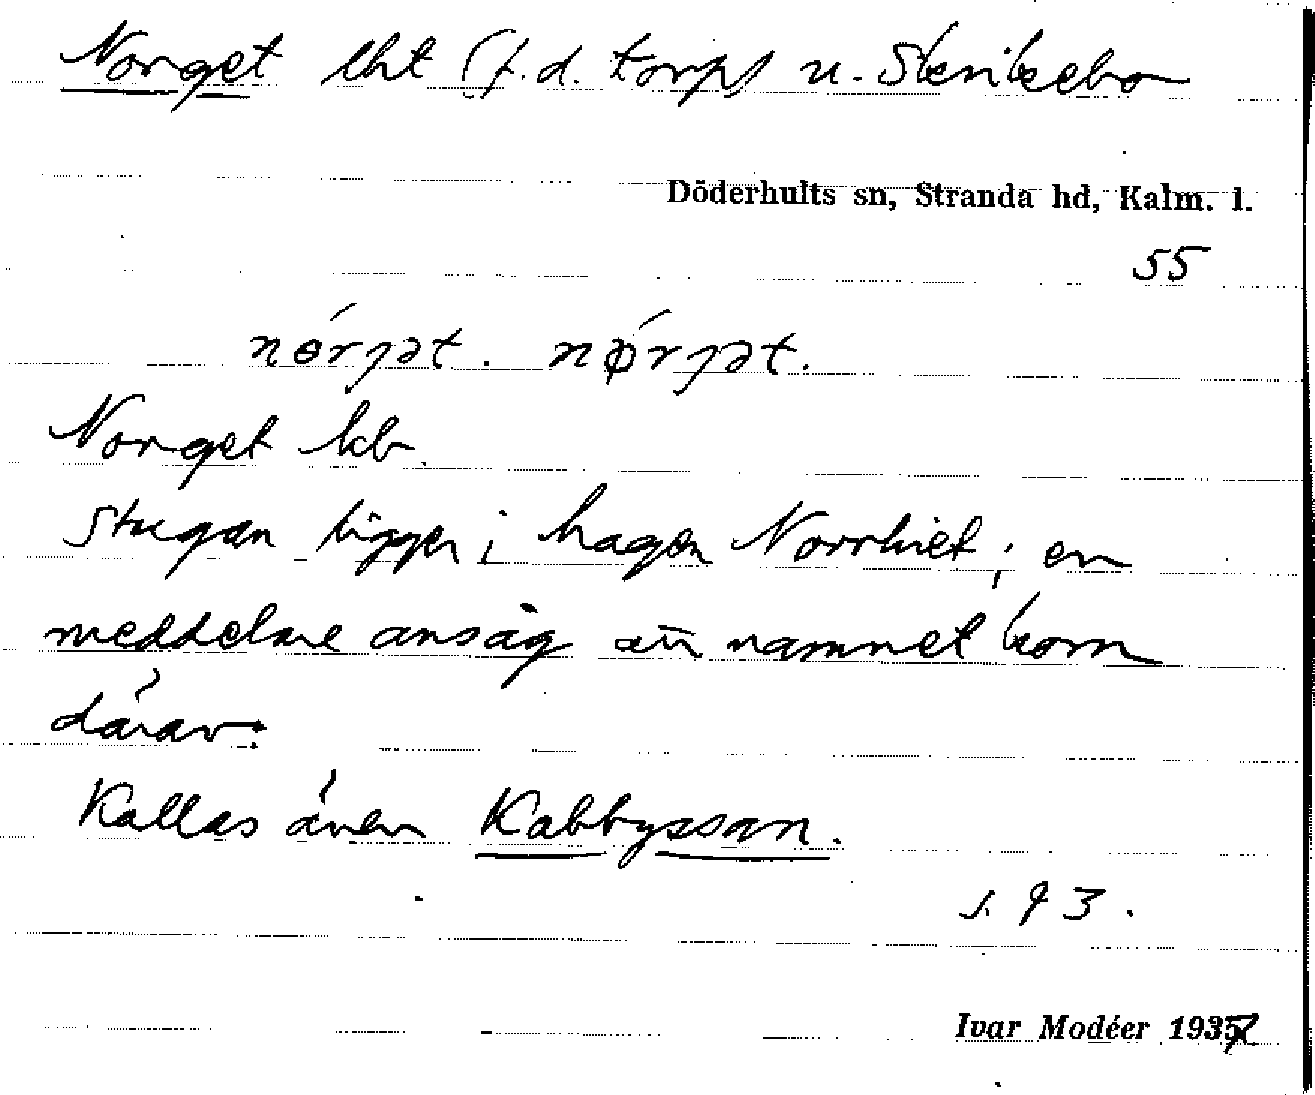 Norget lht (f.d. torp) u. Skrikebo
Döderhults sn, Stranda hd, Kalm. l.
55
nɵ́rjət. nǿrjət.
Norget kb.
Stugan ligger i hagen Norrhiet; en
meddelare ansåg att namnet kom
därav.
Kallas även Kabbyssan.
s. 93.
Ivar Modéer 1937